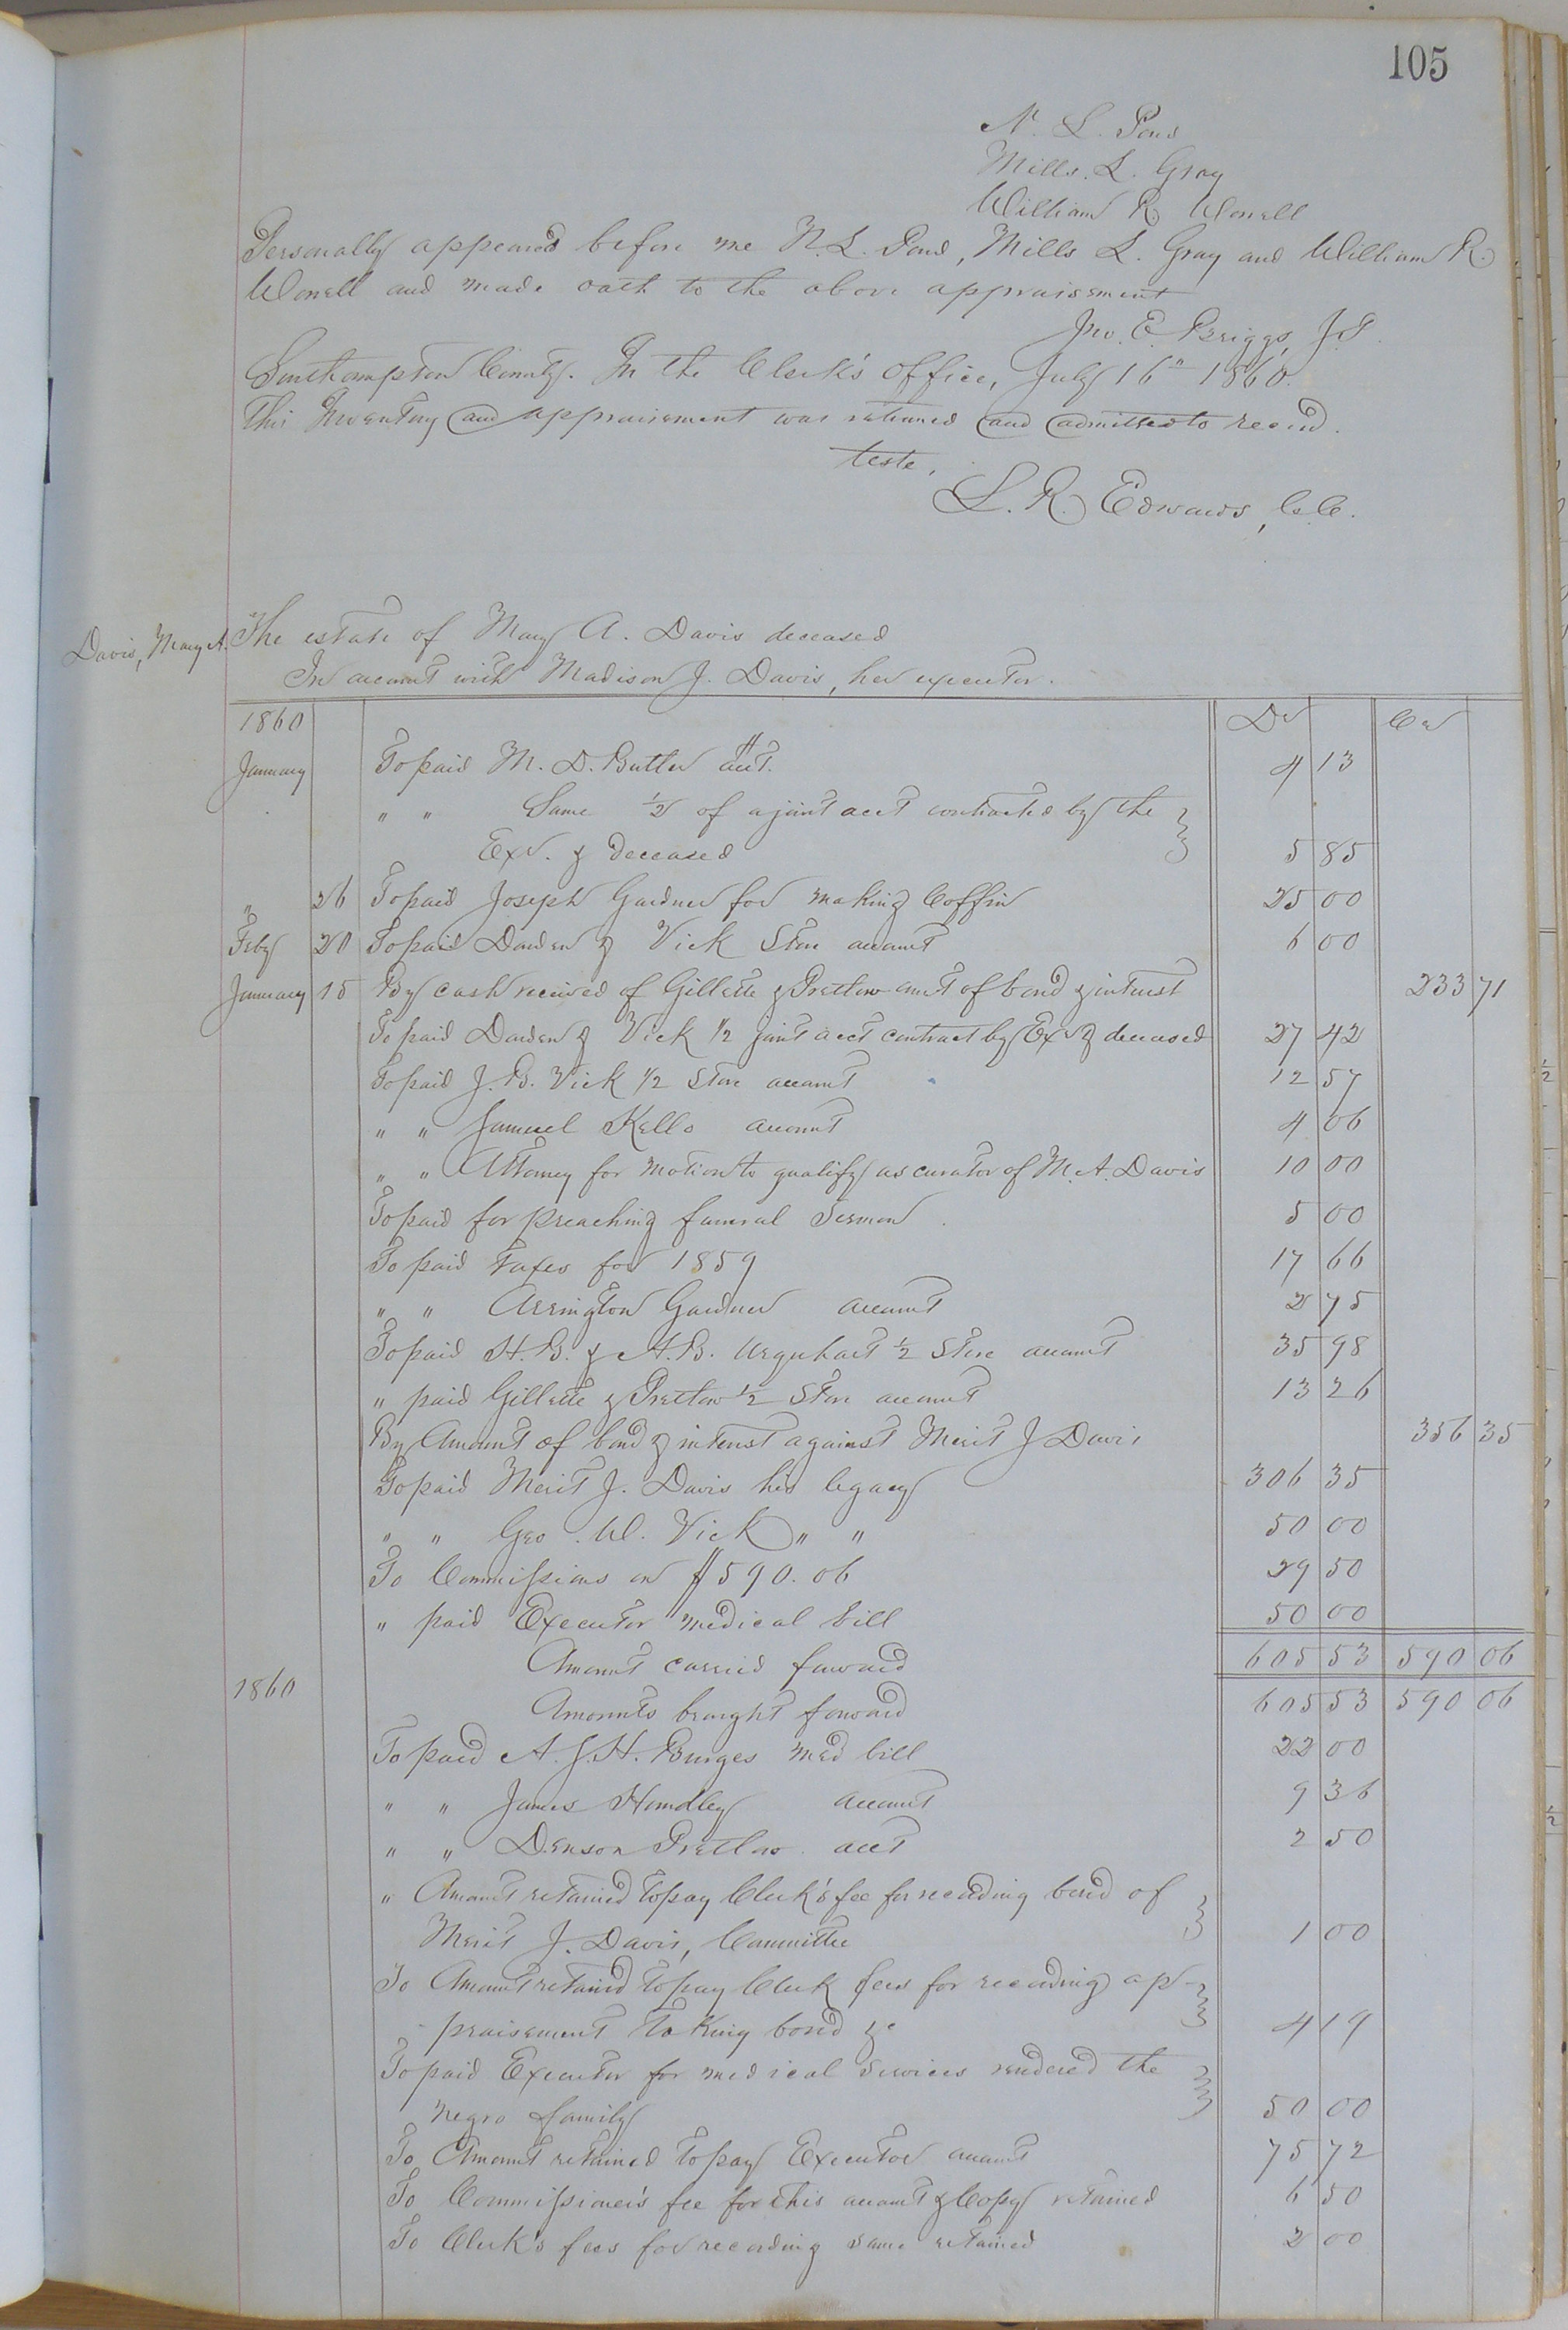 105
N. L. Pond
Mills. L. Gray
William R. Worrell
Personally appeared before me N. L. Pond, Mills L. Gray and William R.
Worrell and made oath to the above appraisement
Jno. E. Briggs, J.P.
Southampton County. In the Clerk's Office, July 16" 1860.
This Inventory and appraisement was returned and admitted to record.
teste,
L. R. Edwards, C.C.
Davis, Mary A.
The estate of Mary A. Davis deceased
In account with Madison J. Davis, her executor.
1860 Dr Cr
January To paid M. D. Butler acct. 4 13
" " Same 1/2 of a joint acct contracted by the
Exr. & deceased 5 85
" 26 To paid Joseph Gardner for making Coffin 25 00
Feby 20 To paid Darden & Vick Store account 6 00
January 15 By cash received of Gillette & Pretlow amt of bond & interest 233 71
To paid Darden & Vick 1/2 joint acct contract by Exr & deceased 27 42
To paid J. B. Vick 1/2 Store account 12 57
" " Samuel Kello account 4 06
" " Attorney for motion to qualify as curator of M. A. Davis 10 00
To paid for preaching funeral Sermon 5 00
To paid taxes for 1859 17 66
" " Arrington Gardner account 2 75
To paid H. B. & A. B. Urquhart 1/2 Store account 35 98
" paid Gillette & Pretlow 1/2 Store account 13 26
By Amount of bond & interest against Merit J Davis 356 35
To paid Merit J. Davis his legacy 306 35
" " Geo. W. Vick " " 50 00
To Commissions on $590.06 29 50
" paid Executor medical bill 50 00
Amount carried forward 605 53 590 06
1860 Amounts brought forward 605 53 590 06
To paid A. J. H. Burges med bill 22 00
" " James Handley account 9 36
" " Denson Pretlow acct 2 50
" Amount retained to pay Clerk's fee for recording bond of
Merit J. Davis, Committee 1 00
To Amount retained to pay Clerk fees for recording ap-
-praisement taking bond &c 4 19
To paid Executor for medical services rendered the
negro family 50 00
To Amount retained to pay Executor account 75 72
To Commissioner's fee for this account & Copy retained 6 50
To Clerk's fees for recording same retained 2 00